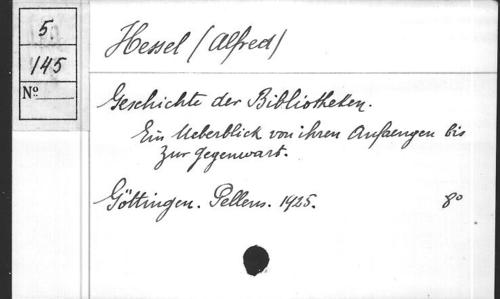 5.
145
Nº
Hessel (Alfred)
Geschichte der Bibliotheken.
Ein Ueberblick von ihren Anfaengen bis
zur Gegenwart.
Göttingen. Pellens. 1925. 8º